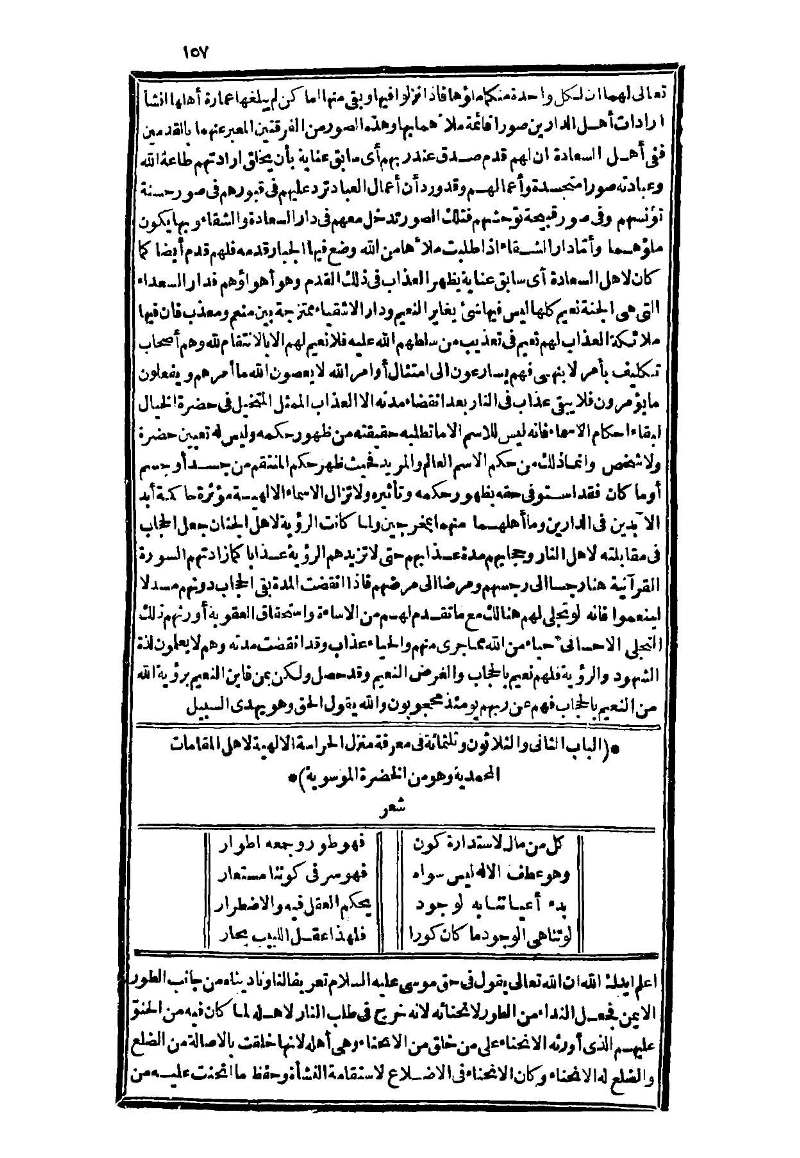 ١٥٧
تعالى لهما ان لكل واحدة منكما ملؤها فاذا نزلوا فيها وبقى منها اما كن لم يبلغها عمارة أهلها انشأ
ارادات أهل الدارين صورا قائمة ملأ هما بها وهذه الصور من الفرقتين المعبر عنها بالقدمين
ففى أهل السعادة ان لهم قدم صدق عند ربهم أى سابق عناية بأن يخلق ارادتهم طاعة الله
وعبادته صورا متجسدة وأعمالهم وقد ورد أن أعمال العباد ترد عليهم فى قبورهم فى صور حسنة
تؤنسهم وفى صور قبيحة توحشهم فتلك الصور تدخل معهم فى دار السعادة والشقاء وبها يكون
ملؤهما وأما دار الشقاء اذا طلبت ملأها من الله وضع فيها الجبار قدمه فلهم قدم أيضا كما
كان لاهل السعادة أى سابق عناية يظهر العذاب فى ذلك القدم وهو أهواؤهم فدار السعداء
التى هى الجنة نعيم كلها ليس فيها شئ يغاير النعيم ودار الاشقياء ممتزجة بين منعم ومعذب فان فيها
ملائكة العذاب لهم نعيم فى تعذيب من سلطهم الله عليه فلا نعيم لهم الا بالانتقام لله وهم أصحاب
تكليف بأمر لا بنهى فهم يسارعون الى امتثال أوامر الله لا يعصون الله ما أمرهم ويفعلون
ما يؤمرون فلا يبقى عذاب فى النار بعد انقضاء مدته الا العذاب الممثل المتخيل فى حضرة الخيال
لبقاء احكام الاسماء فانه ليس للاسم الا ما تطلبه حقيقته من ظهور حكمه وليس له تعيين حضرة
ولا شخص وانما ذلك من حكم الاسم العالم والمريد فحيث ظهر حكم المنتقم من جسد أو جسم
أو ما كان فقد استوفى حقه بظهور حكمه وتأثيره ولا تزال الاسماء الالهية مؤثرة حاكمة أبد
الآبدين فى الدارين وما أهلهما منها بمخرجين ولما كانت الرؤية لاهل الجنان جعل الحجاب
فى مقابلته لاهل النار وحجابهم مدة عذابهم حتى لا تزيدهم الرؤية عذابا كما زادتهم السورة
القرآنية هنا رجسا الى رجسهم ومرضا الى مرضهم فاذا انقضت المدة بقى الحجاب دونهم مسدلا
لينعموا فانه لو تجلى لهم هنالك مع ما تقدم لهم من الاساءة واستحقاق العقوبة أورثهم ذلك
التجلى الاحسانى حياء من الله مما جرى منهم والحياء عذاب وقد انقضت مدته وهم لا يعلمون لذة
الشهود والرؤية فلهم نعيم بالحجاب والغرض النعيم وقد حصل ولكن بمن فاين النعيم برؤية الله
من النعيم بالحجاب فهم عن ربهم يومئذ محجوبون والله يقول الحق وهو يهدى السبيل
*(الباب الثانى والثلاثون وثلثمائة فى معرفة منزل الحراسة الالهية لاهل المقامات
المحمدية وهو من الحضرة الموسوية)*
شعر
كل من مال لاستدارة كون فهو طور وجمعه اطوار
وهو عطف الاله ليس سواه فهو سر فى كوننا مستعار
بدء أعياننا به لوجود يحكم العقل فيه والاضطرار
لو تناهى الوجود ما كان كورا فلهذا عقل اللبيب يحار
اعلم ايدك الله ان الله تعالى يقول فى حق موسى عليه السلام تعريفا لنا وناديناه من جانب الطور
الايمن فجعل النداء من الطور لانحنائه لانه خرج فى طلب النار لاهله لما كان فيه من الحنوّ
عليهم الذى أورثه الانحناء على من خلق من الانحناء وهى أهله لانها خلقت بالاصالة من الضلع
والضلع له الانحناء وكان الانحناء فى الاضلاع لاستقامة النشأة وحفظ ما انحنت عليه من